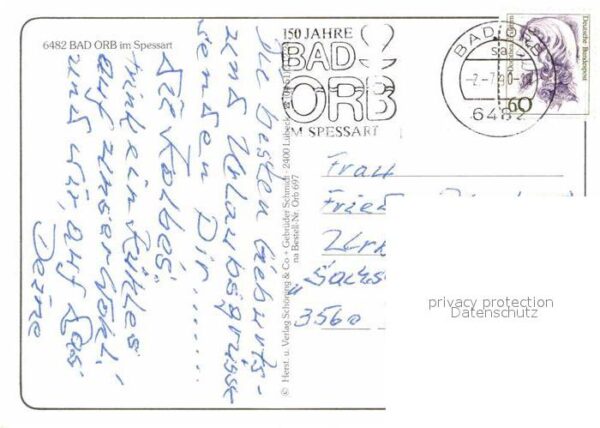 6482 BAD ORB im Spessart
150 JAHRE
BAD
ORB
IM SPESSART
BAD ORB
6482
Deutsche Bundespost
60
Die besten Geburts-
und Urlaubsgrüsse
senden Dir.......
Trink ein kühles
auf unser Wohl!
und wir, auf das
Deine
© Herst. u. Verlag Schöning & Co + Gebrüder Schmidt · 2400 Lübeck
na Bestell-Nr. Orb 697
Frau
3560
privacy protection
Datenschutz